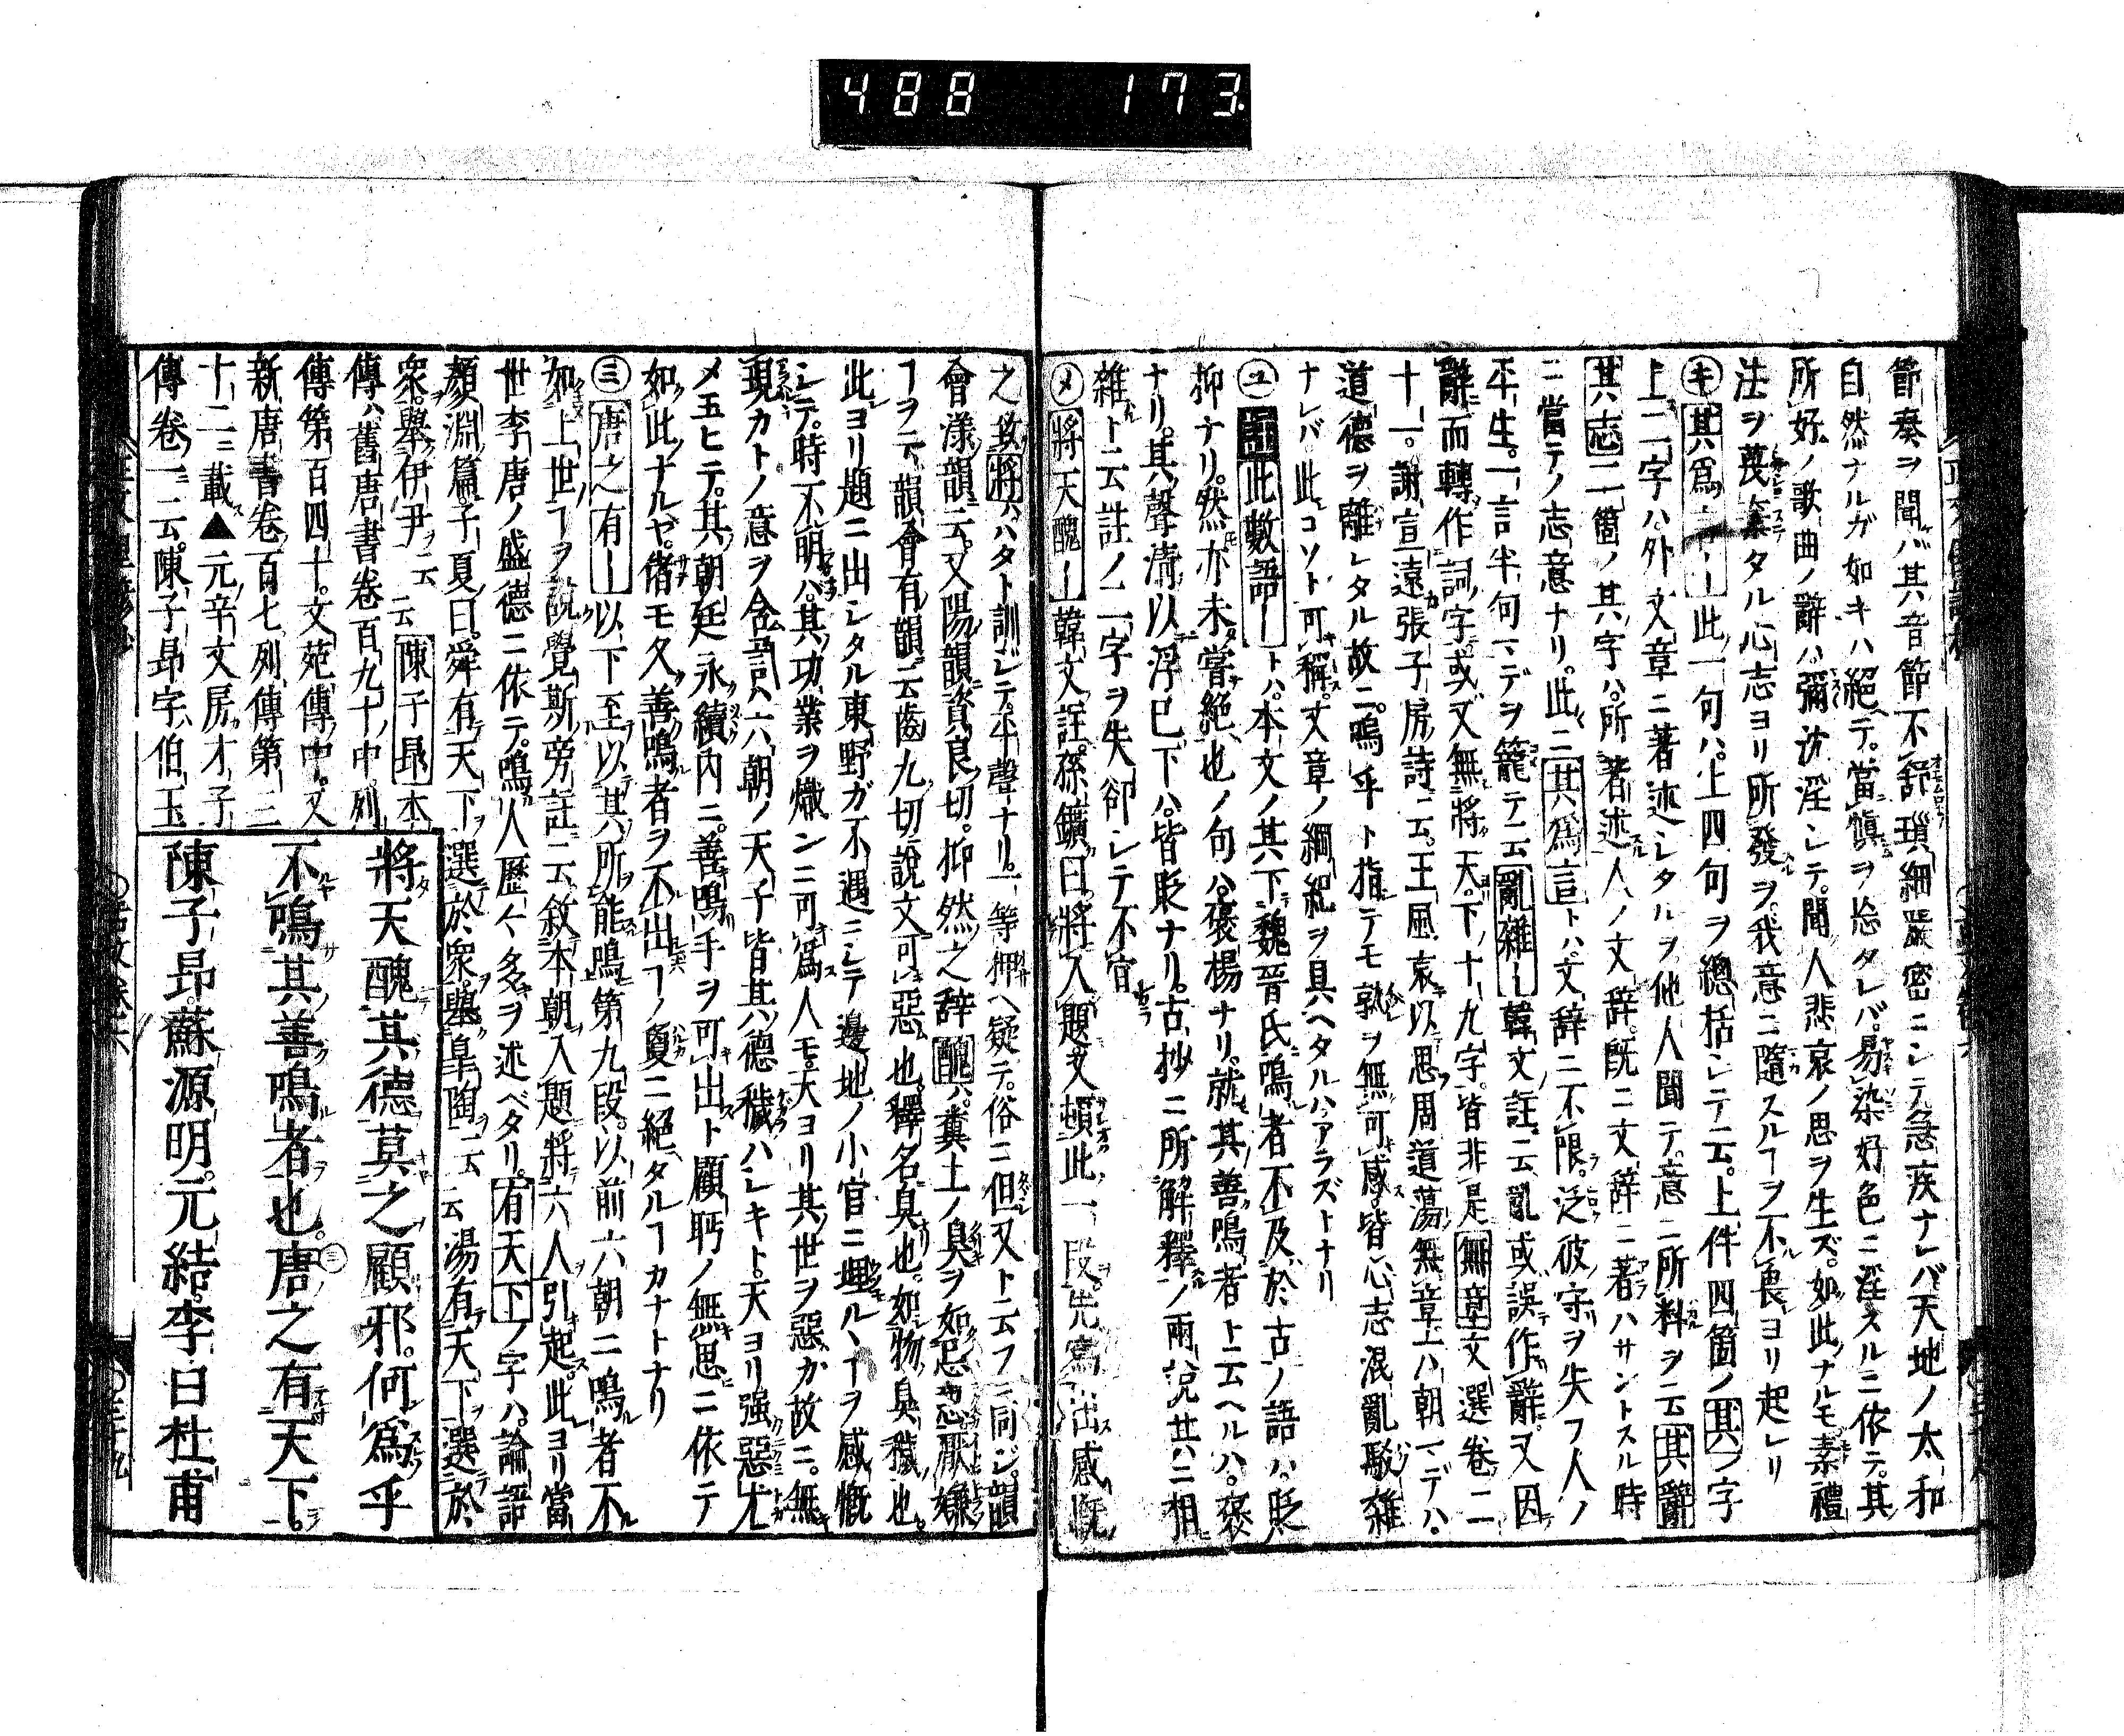 488 173
節奏ヲ聞バ其音節不舒瑣細嚴密ニシテ急疾ナレバ天地ノ太和
自然ナルガ如キハ絕テ當愼ヲ怠タレバ易染好色ニ淫スルニ依テ其
所好ノ歌曲ノ辭ハ彌放淫シテ聞人悲哀ノ思ヲ生ズ如此ナルモ素禮
法ヲ喪棄タル心志ヨリ所發ヲ我意ニ隨スルヿヲ不畏ヨリ起レリ
㋖其爲言ー此一句ハ上四句ヲ總括シテ云上件四箇ノ其ノ字
上二字ハ外文章ニ著述シタルヲ他人聞テ意ニ所料ヲ云其辭
其志二箇ノ其字ハ所著述人ノ文辞既ニ文辞ニ著ハサントスル時
ニ當テノ志意ナリ此ニ其爲言トハ文辞ニ不限泛彼守ヲ失フ人ノ
平生一言半句マデヲ籠テ云亂雜ー韓文註ニ云亂或誤作辭又因
辭而轉作詞字或又無將天下十九字皆非是無章文選卷二
十一謝宣遠張子房詩ニ云王風哀以思周道蕩無章上ハ朝マデハ
道德ヲ離レタル故ニ鳴乎ト指テモ孰ヲ無可感皆心志混亂駁雜
ナレバ此コソト可稱文章ノ綱紀ヲ具ヘタルハアラズトナリ
㋴此數語ートハ本文ノ其下魏晉氏鳴者不及於古ノ語ハ貶
抑ナリ然亦未嘗絕也ノ句ハ褒揚ナリ就其善鳴者ト云ヘルハ褒
ナリ其聲淸以浮已下ハ皆貶ナリ古抄ニ所解釋ノ兩說共ニ相
雜ト云註ノ二字ヲ失卻シテ不官
㋱將天醜ー韓文註孫鑛曰將入題文頓此一段先寫出感慨
之致將ハハタト訓ジテ平聲ナリ一等押ヘ疑テ俗ニ但又ト云フニ同ジ韻
會漾韻云又陽韻資良切抑然之辞醜ハ糞土ノ臭ヲ如忌惡厭嫌
ヿヲ云韻會有韻云齒九切說文可惡也釋名臭也如物臭穢也
此ヨリ題ニ出シタル東野ガ不遇ニシテ邊地ノ小官ニ埋ルヽヿヲ感慨
シテ時不明ハ其功業ヲ熾ンニ可爲人モ天ヨリ其世ヲ惡カ故ニ無
現カトノ意ヲ含言ハ六朝ノ天子皆其德穢ハシキト天ヨリ強惡尤
メ玉ヒテ其朝廷永續內ニ善鳴手ヲ可出ト顧眄ノ無思ニ依テ
如此ナルヤ偖モ久善鳴者ヲ不出ヿノ敻ニ絕タルヿカナトナリ
㊂唐之有ー以下至以其所能鳴第九段以前六朝ニ鳴者不
如上世ヿヲ說覺斯旁註云敘本朝入題將六人引起此ヨリ當
世李唐ノ盛德ニ依テ鳴人歷々多ヲ述ベタリ有天下ノ字ハ論語
顏淵篇子夏曰舜有天下選於衆舉皐陶云云湯有天下選於
衆舉伊尹云云陳子昻本
傳ハ舊唐書卷百九十中列
傳第百四十文苑傳中又
新唐書卷百七列傳第三
十二ニ載▲元辛文房才子
傳卷一云陳子昻字ハ伯玉
將天醜其德莫之顧邪何爲乎
不鳴其善鳴者也㊂唐之有天下
陳子昻蘇源明元結李白杜甫